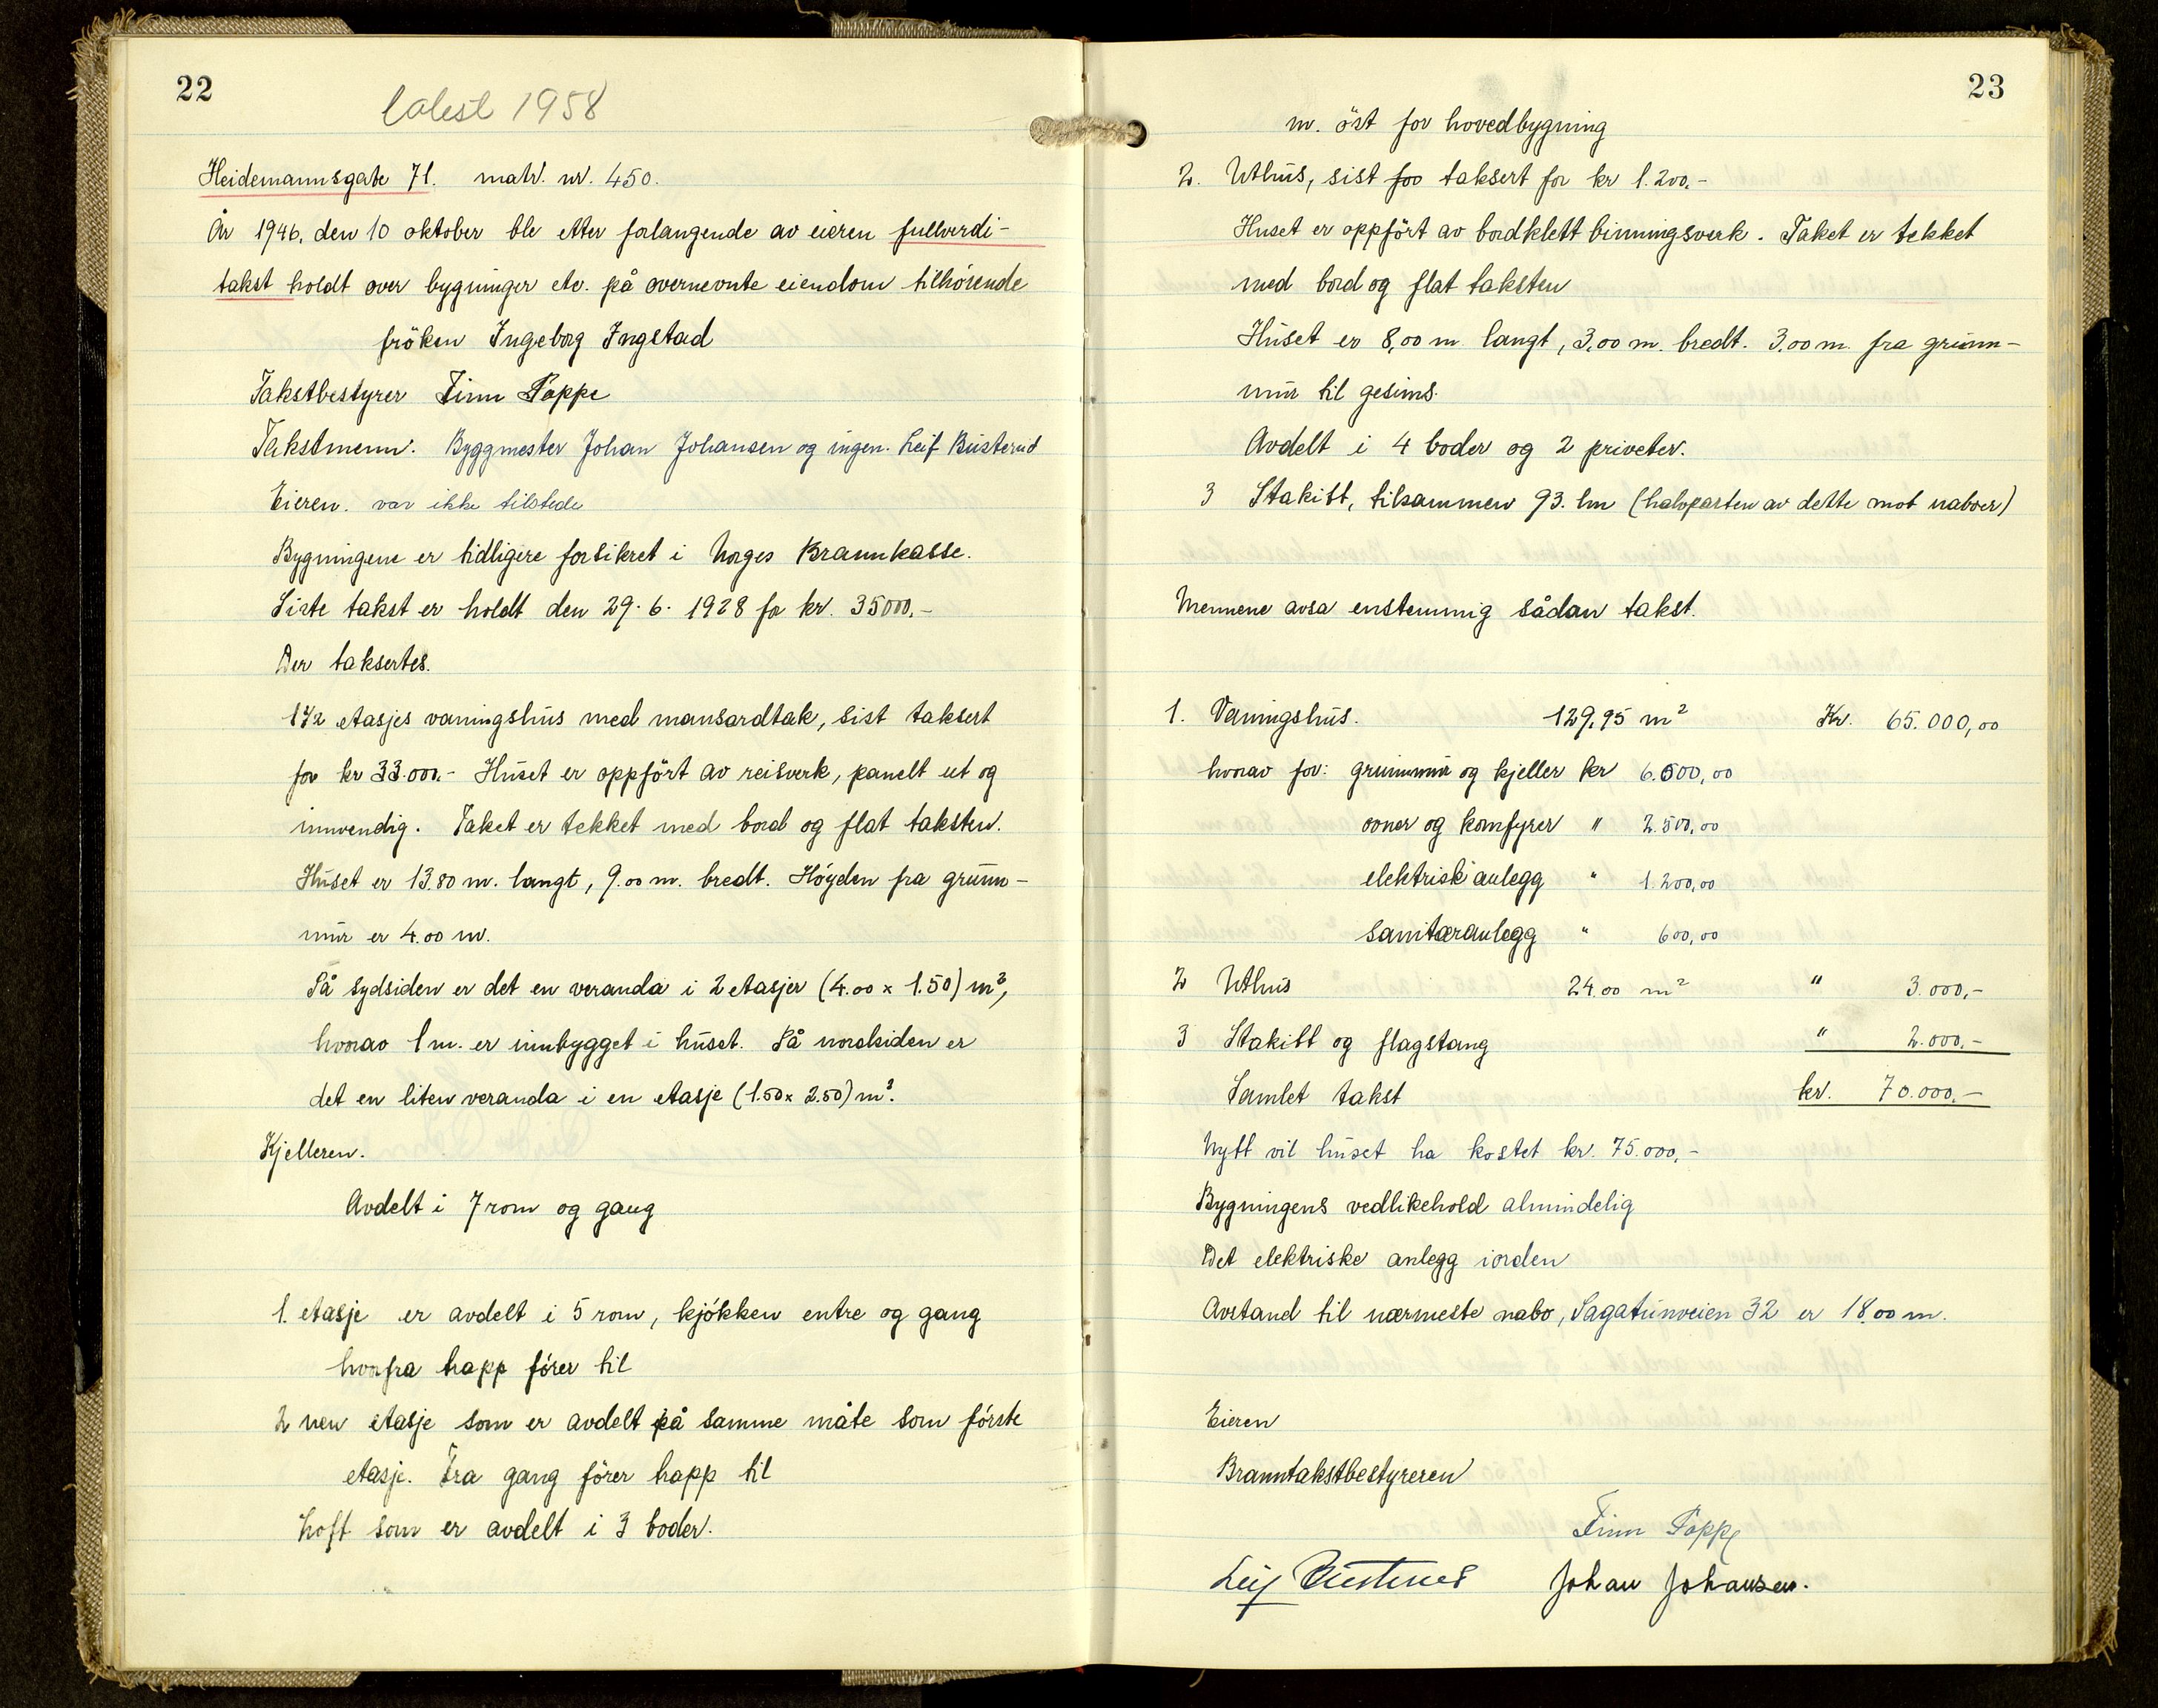 22
1958
Heidemannsgate 71. matr. nr. 450.
År 1946, den 10 oktober ble etter forlangende av eieren fullverdi-
takst holdt over bygninger etc. på overnevnte eiendom tilhørende
fröken Ingeborg Ingstad
Takstbestyrer Finn Poppe
Takstmenn: Byggmester Johan Johansen og ingen. Leif Busterud
Eieren. var ikke tilstede
Bygningene er tidligere forsikret i Norges Brannkasse.
Siste takst er holdt den 29.6.1928 for kr. 35000.-
Der taksertes.
1 1/2 etasjes våningshus med mansardtak, sist taksert
for kr 33.000.- Huset er oppfört av reisverk, panelt ut og
innvendig. Taket er tekket med bord og flat taksten.
Huset er 13.80 m. langt, 9.00 m. bredt. Höyden fra grunn-
mur er 4.00 m.
På sydsiden er det en veranda i 2 etasjer (4.00 x 1.50) m²,
hvorav 1 m. er innbygget i huset. På nordsiden er
det en liten veranda i en etasje (1.50 x 2.50) m².
Kjelleren.
Avdelt i 7 rom og gang
1. etasje er avdelt i 5 rom, kjökken entre og gang
hvorfra trapp förer til
2 nen etasje som er avdelt på samme måte som förste
etasje. Fra gang förer trapp til
Loft som er avdelt i 3 boder.
23
m. öst for hovedbygning
2. Uthus, sist for taksert for kr 1.200.-
Huset er oppfört av bordklett binningsverk. Taket er tekket
med bord og flat taksten
Huset er 8,00 m langt, 3,00 m. bredt. 3,00 m. fra grunn-
mur til gesims.
Avdelt i 4 boder og 2 priveter.
3 Stakitt, tilsammen 93. lm (halvparten av dette mot naboer)
Mennene avsa enstemmig sådan takst.
1. Våningshus. 129,95 m² Kr. 65.000,00
hvorav for: grunnmur og kjeller kr 6.500,00
ovner og komfyrer " 2.500,00
elektrisk anlegg " 1.200,00
sanitæranlegg " 600,00
2 Uthus 24.00 m² " 3.000,-
3 Stakitt og flagstang " 2.000,-
Samlet takst kr. 70.000.-
Nytt vil huset ha kostet kr. 75.000,-
Bygningens vedlikehold almindelig
Det elektriske anlegg iorden
Avstand til nærmeste nabo, Sagatunveien 32 er 18,00 m.
Eieren
Branntakstbestyreren
Finn Poppe
Leif Busterud Johan Johansen.